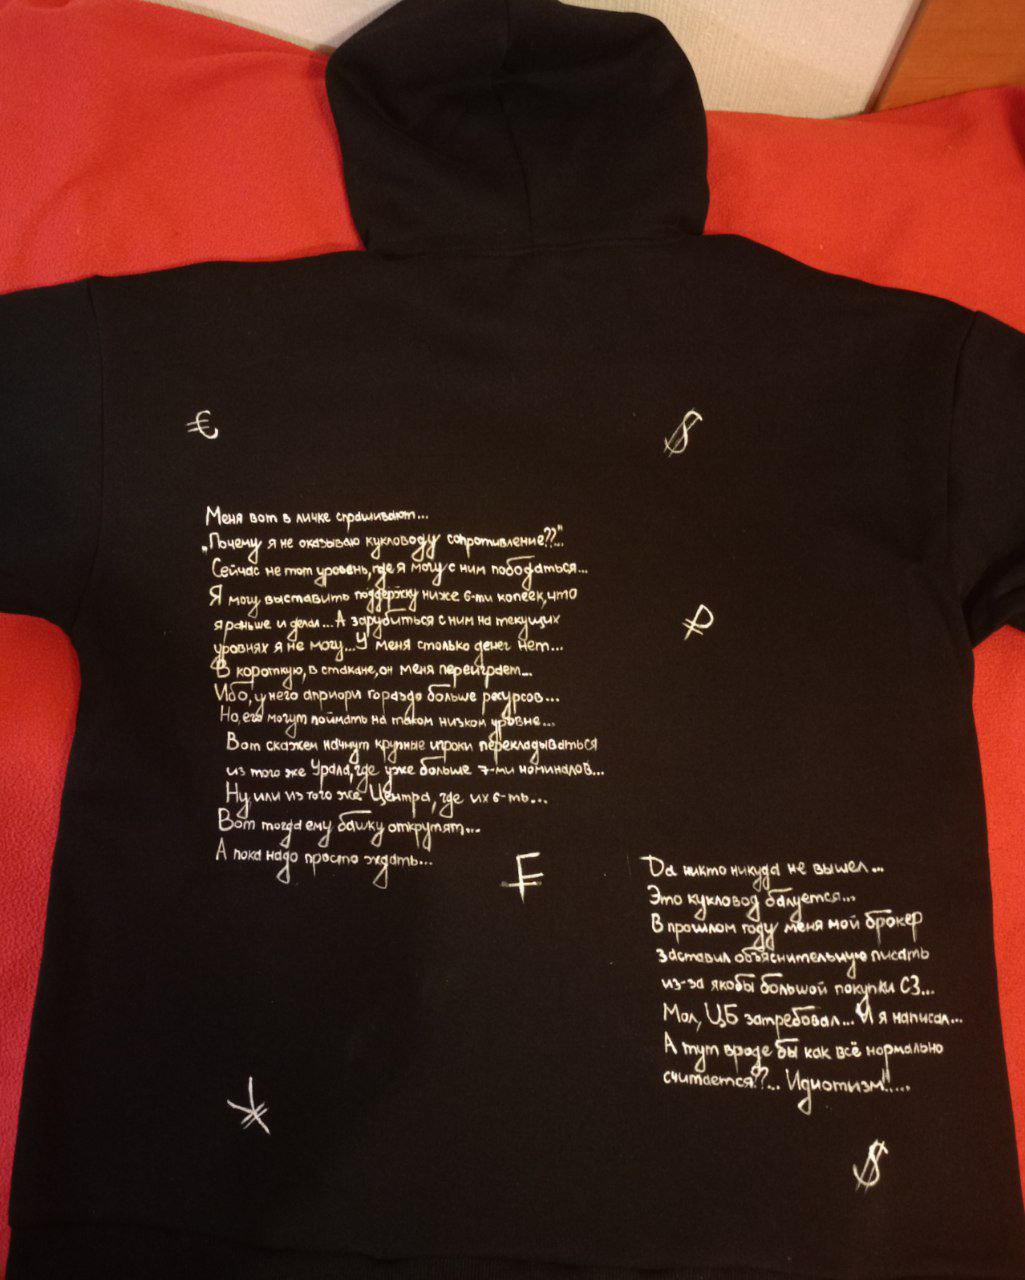 €
$
Меня вот в личке спрашивают...
„Почему я не оказываю кукловоду сопротивление??..."
Сейчас не тот уровень, где я могу с ним пободаться...
Я могу выставить поддержку ниже 6-ти копеек, что
я раньше и делал... А зарубиться с ним на текущих
уровнях я не могу... У меня столько денег нет...
В короткую, в стакане, он меня переиграет...
Ибо, у него априори гораздо больше ресурсов...
Но, его могут поймать на таком низком уровне...
Вот скажем начнут крупные игроки перекладываться
из того же Урала, где уже больше 7-ми номиналов...
Ну, или из того же Центра, где их 6-ть...
Вот тогда ему башку открутят...
А пока надо просто ждать...
₽
₣
Да никто никуда не вышел...
Это кукловод балуется...
В прошлом году меня мой брокер
заставил объяснительную писать
из-за якобы большой покупки СЗ...
Мол, ЦБ затребовал... И я написал...
А тут вроде бы как всё нормально
считается??... Идиотизм!!.....
¥
$